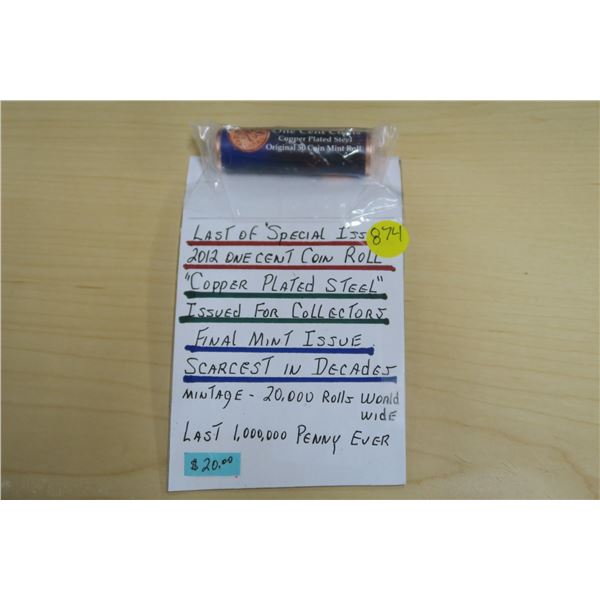 One Cent
Copper Plated Steel
Original 50 Coin Mint Roll
LAST OF "SPECIAL ISS
874
2012 ONE CENT COIN ROLL
"COPPER PLATED STEEL"
ISSUED FOR COLLECTORS
FINAL MINT ISSUE
SCARCEST IN DECADES
MINTAGE - 20,000 ROLLS WORLD
WIDE
LAST 1,000,000 PENNY EVER
$20.00